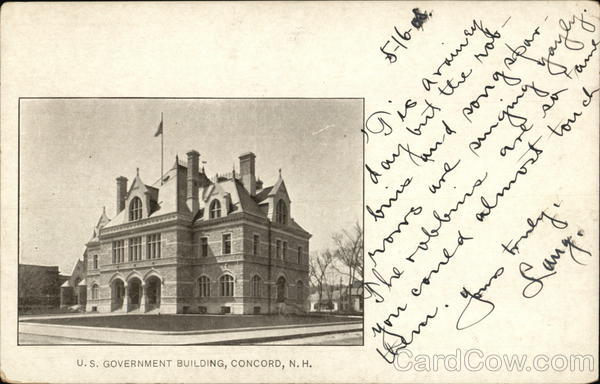 5-16-
'T is a rainey
day but the rob-
bins and song spar-
rows are singing gayly.
The robbins are so tame
you could almost touch
them. Yours truly,
Lang.
U. S. GOVERNMENT BUILDING, CONCORD, N. H.
CardCow.com